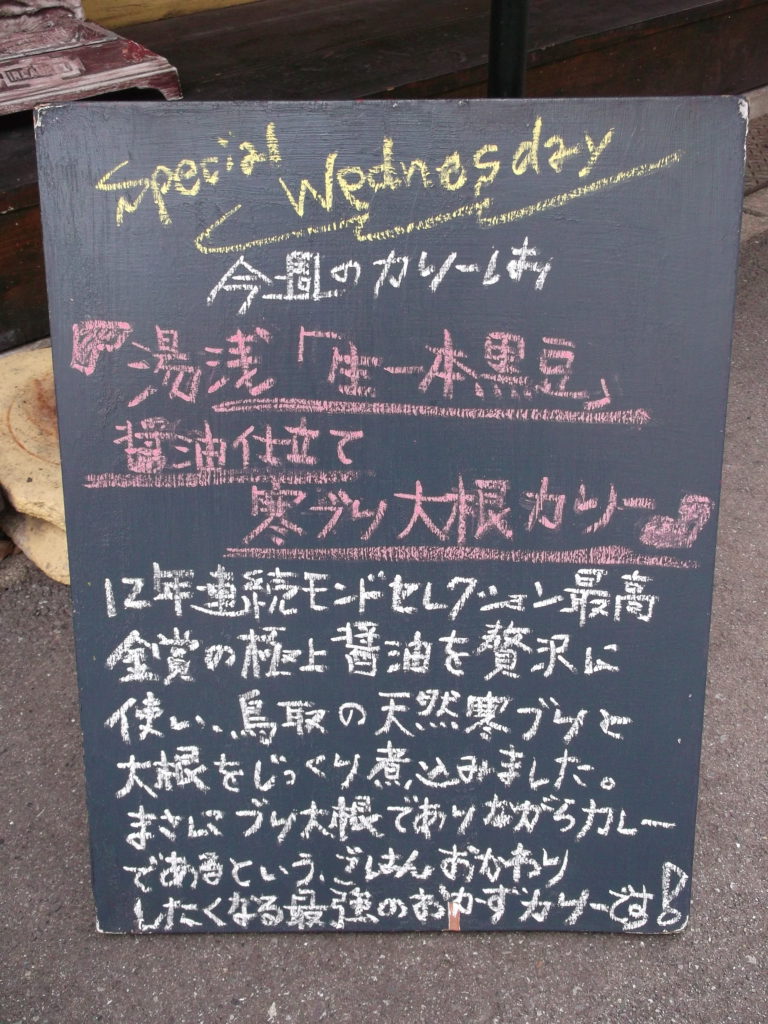 Special Wednesday
今週のカリーは
『湯浅「生一本黒豆」
醤油仕立て
寒ブリ大根カリー』
12年連続モンドセレクション最高
金賞の極上醤油を贅沢に
使い、鳥取の天然寒ブリと
大根をじっくり煮込みました。
まさにブリ大根でありながらカレー
であるという、ごはんおかわり
したくなる最強のおかずカリーです!